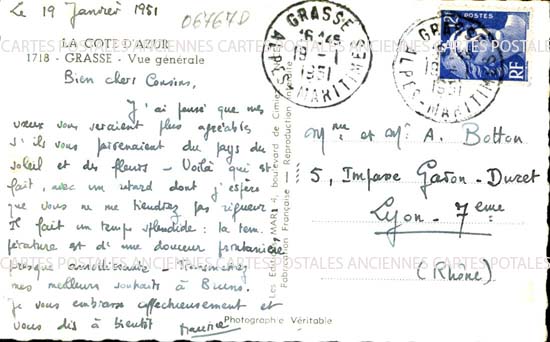 Le 19 Janvier 1951
06767D
LA COTE D'AZUR
1718 - GRASSE - Vue générale
Bien chers Cousins,
J'ai pensé que mes
vœux vous seraient plus agréables
s'ils vous parvenaient du pays du
soleil et des fleurs - Voilà qui est
fait, avec un retard dont j'espère
que vous ne me tiendrez pas rigueur
Il fait un temps splendide : la tem.
pérature est d'une douceur printanière
presque amollissante - Transmettez
mes meilleurs souhaits à Bruno.
Je vous embrasse affectueusement et
vous dis à bientôt
Maurice
Photographie Véritable
Les Editions MAR 4, boulevard de Cimiez
Fabrication Française — Reproduction Interdite
GRASSE
16 45
19 - 1
1951
ALPES-MARITIMES
GRASSE
19
1951
ALPES-MARITIMES
POSTES
RF
Mme et Mr A. Botton
5, Impasse Gaton-Duret
Lyon - 7eme
(Rhône)
CARTES POSTALES ANCIENNES